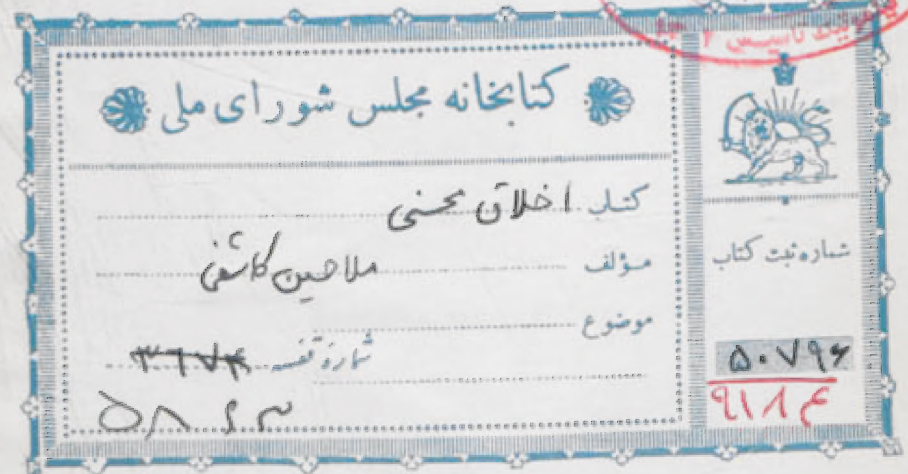 تأسیس
کتابخانه مجلس شورای ملی
کتاب اخلاق محسنی
مؤلف ملاحسین کاشفی
موضوع
شماره قفسه ۳۶۷۴
۵۸۶۳
شماره ثبت کتاب
۵۰۷۹۶
۹۱۸۴